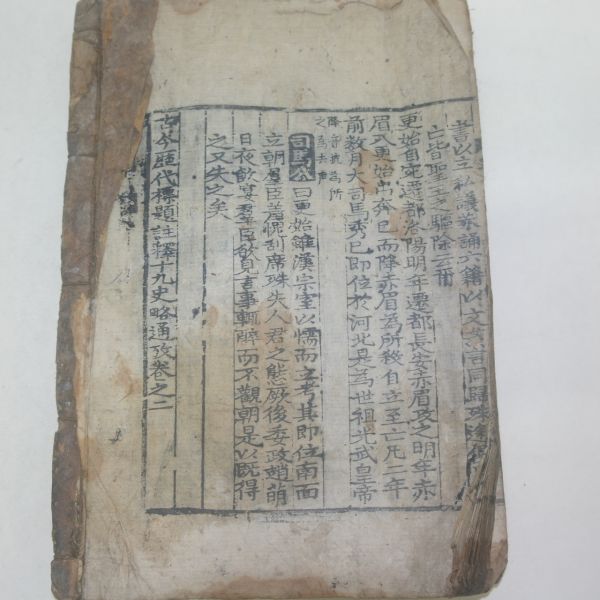 書以立私議兼誦六籍以文姦言同歸殊途俱
亡皆聖王之驅除云爾
更始自宛遷都洛陽明年遷都長安赤眉攻之明年赤
眉入更始出奔已而降赤眉爲所殺自立至亡凡二年
前數月大司馬秀已即位於河北是爲世祖光武皇帝
降
之
司馬公曰更始雖漢宗室以懦而立考其即位南面
立朝羣臣羞愧刮席殊失人君之態厥後委政趙萌
日夜飮宴羣臣欲見言事輒醉而不觀朝是以旣得
之又失之矣
古今歷代標題註釋十九史略通攷卷之二